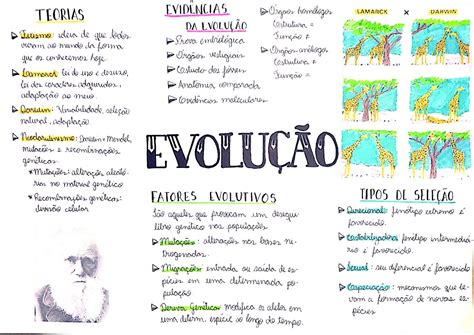 TEORIAS
Fixismo: ideia de que todos
vieram ao mundo da forma
que os conhecemos hoje.
Lamarck: lei do uso e desuso,
lei dos caracteres adquiridos,
adaptação ao meio
Darwin: Variabilidade, seleção
natural, adaptação
Neodarwinismo: Darwin + Mendel,
mutações e recombinações
genéticas
Mutações: alterações aleató-
rias no material genético
Recombinações genéticas:
divisão celular
EVIDÊNCIAS
DA EVOLUÇÃO
Prova embriológica
Órgãos vestigiais
Estudo dos fósseis
Anatomia comparada
Evidências moleculares
Órgãos homólogos
Estrutura =
Função ≠
Órgãos análogos
Estrutura ≠
Função =
LAMARCK × DARWIN
EVOLUÇÃO
FATORES EVOLUTIVOS
São aqueles que provocam um desequi
líbrio genético nas populações.
Mutações: alterações nas bases ni
trogenadas.
Migrações: entrada ou saída de es
pécies em uma determinada po
pulação
Deriva Genética: modifica os alelos em
uma determ. espécie ao longo do tempo.
TIPOS DE SELEÇÃO
Direcional: fenótipo extremo é
favorecido.
Estabilizadora: fenótipo intermediá
rio é favorecido.
Sexual: seu diferencial é favorecido
Especiação: mecanismos que le
vam a formação de novas es
pécies